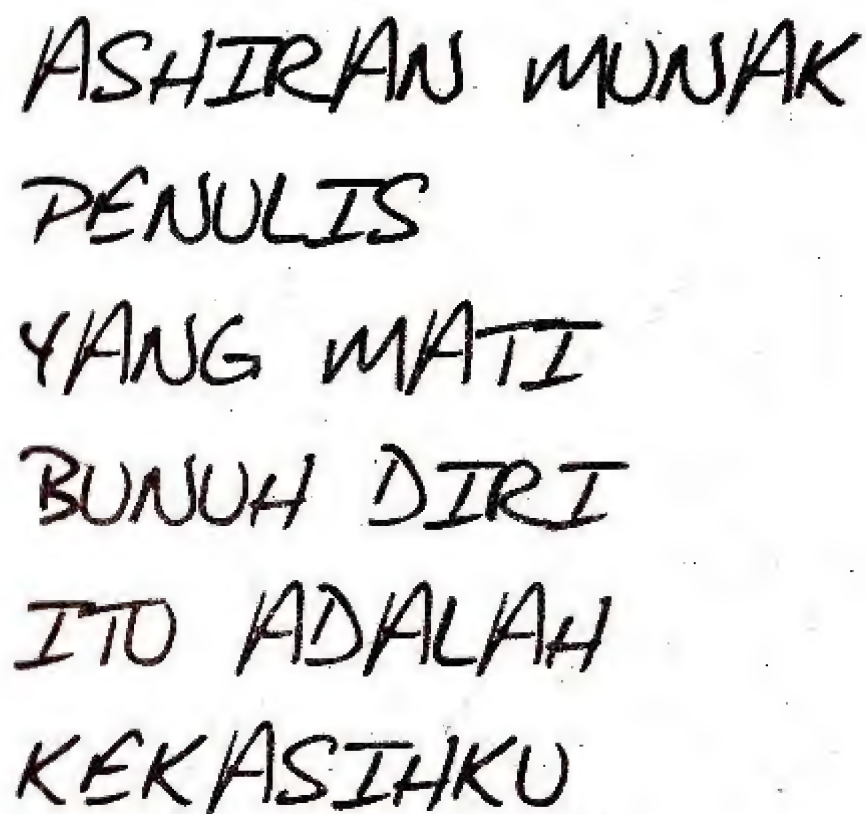 ASHIRAN MUNAK
PENULIS
YANG MATI
BUNUH DIRI
ITU ADALAH
KEKASIHKU